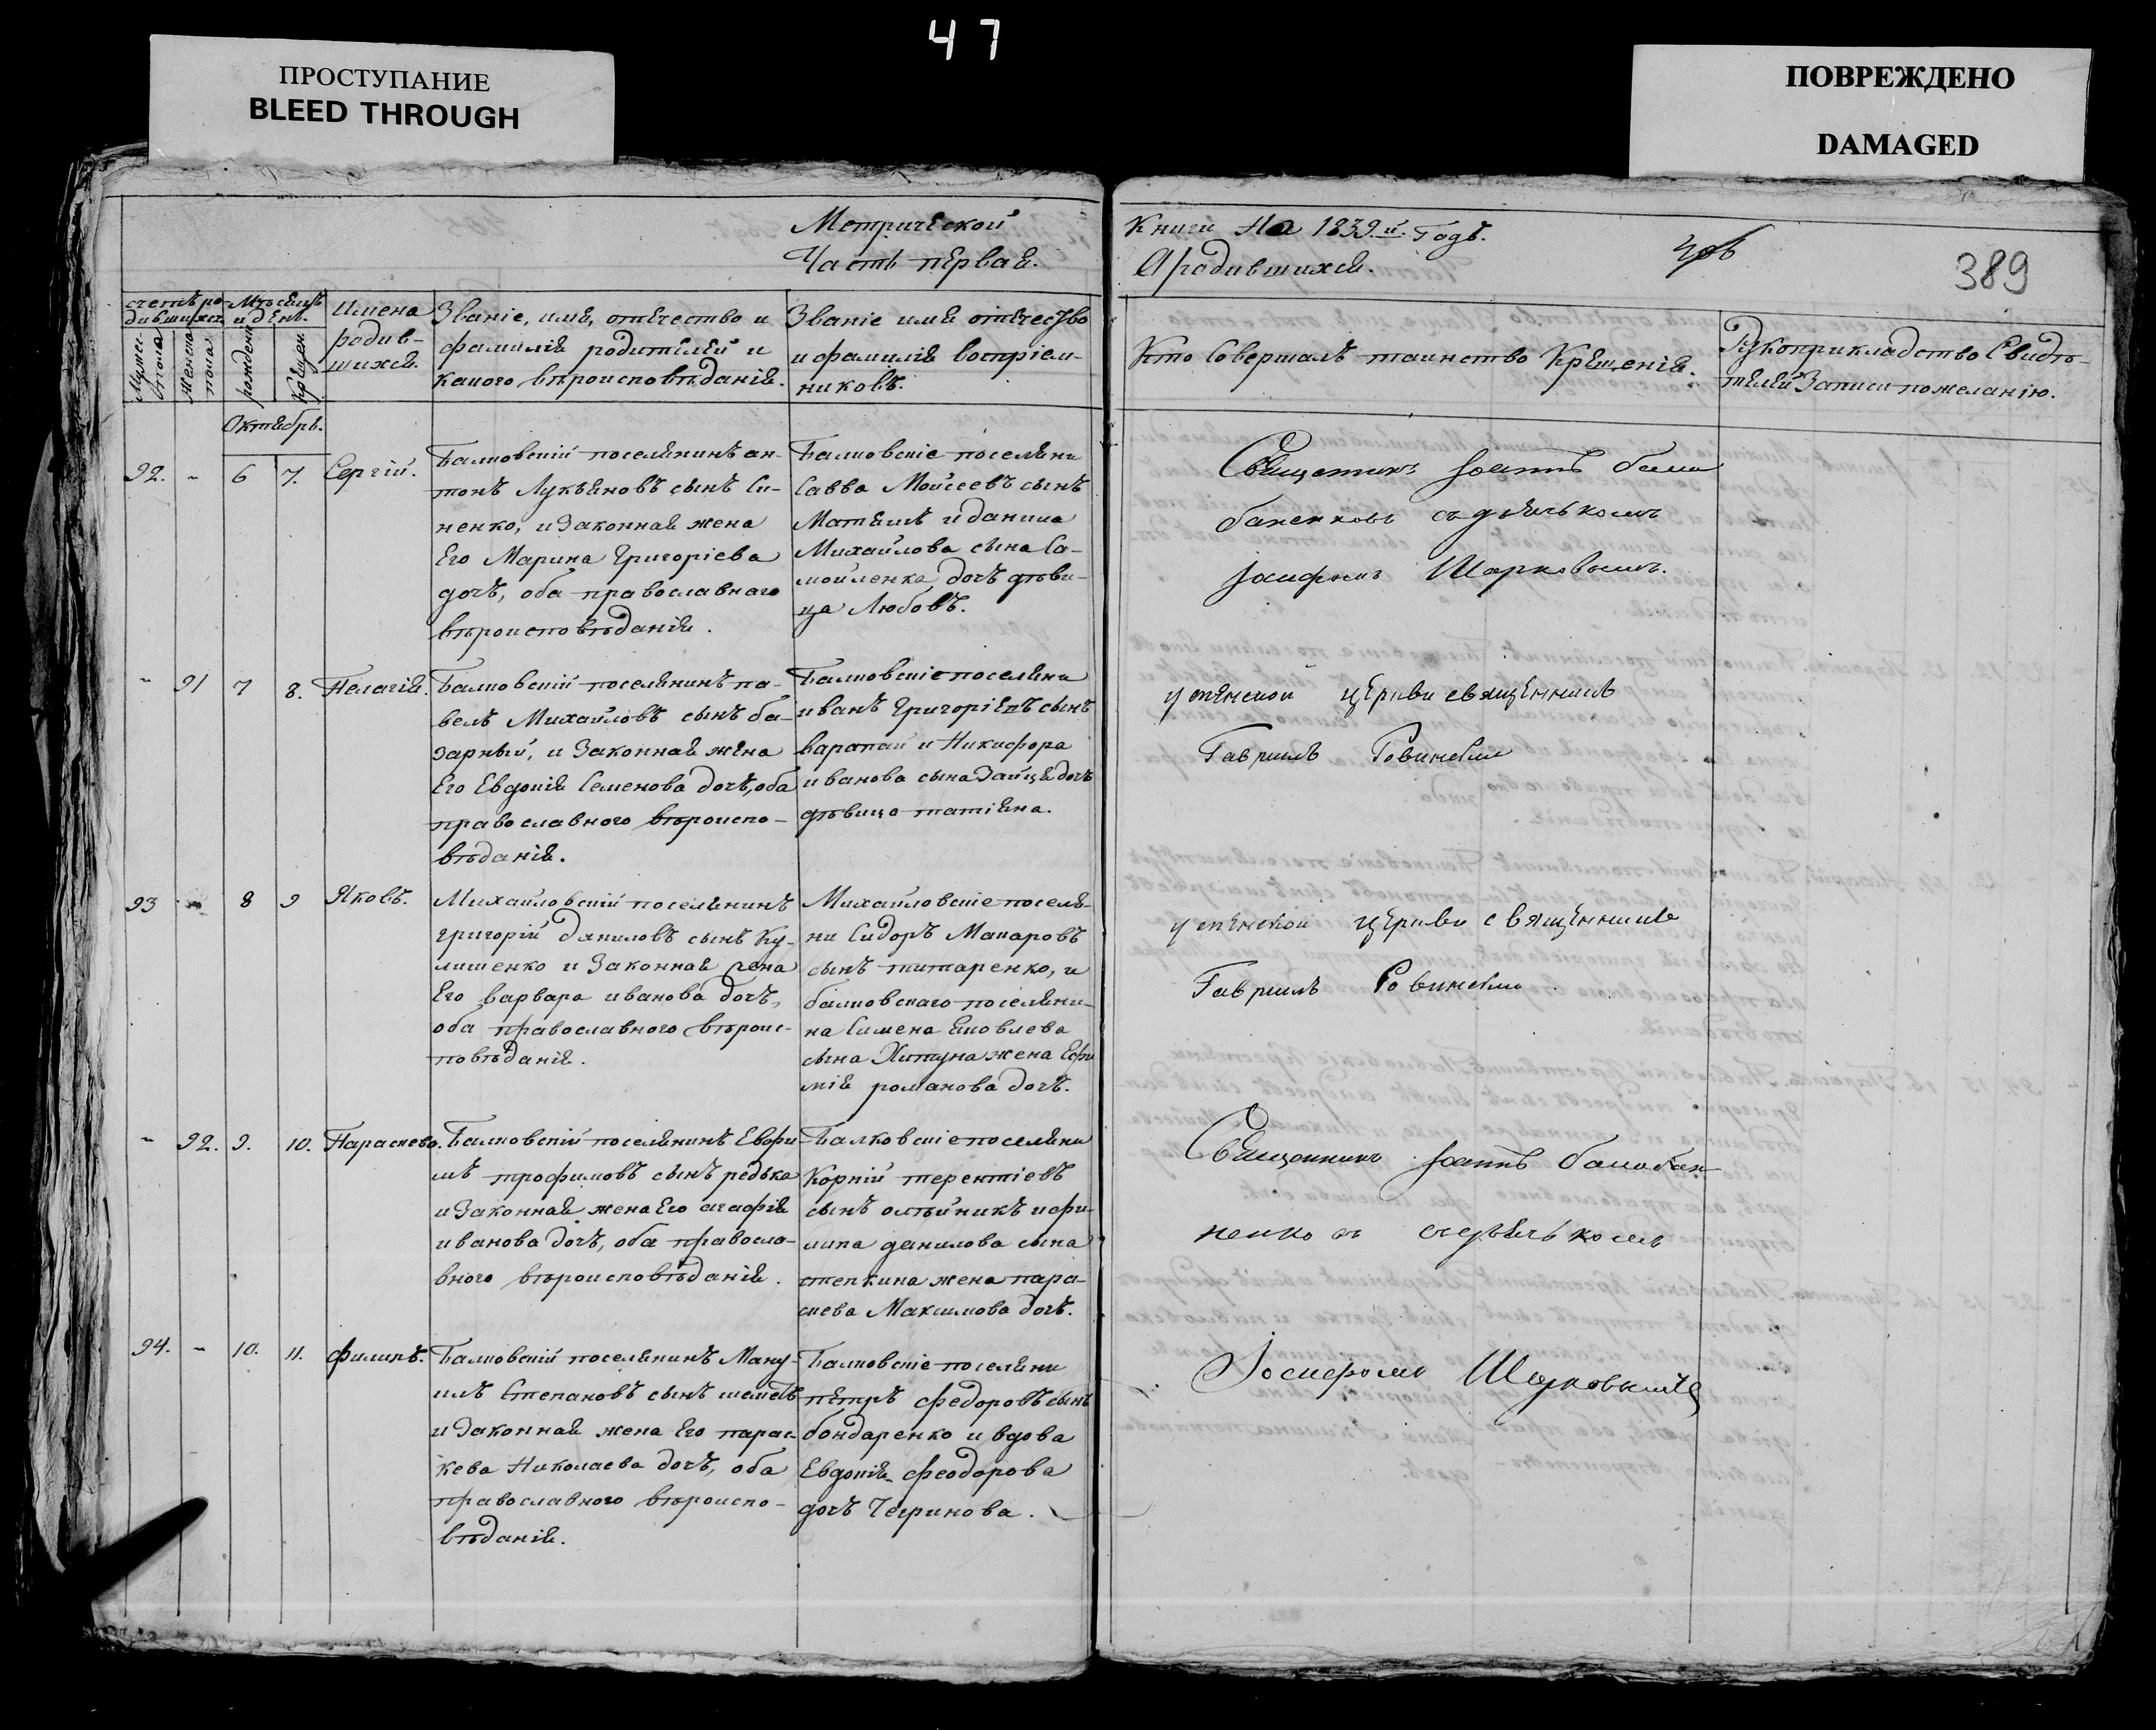 47
ПРОСТУПАНИЕ
BLEED THROUGH
ПОВРЕЖДЕНО
DAMAGED
Метрической
Часть первая.
Книги на 1839й. Годъ.
О родившихся.
406
389
счетъ ро-
дившихся
Мѣсяцъ
и день.
Мужес.
пола
Женска
пола
рожден
Крещен.
Имена
родив-
шихся.
Званіе, имя, отечество и
фамилія родителей и
какого вѣроисповѣданія.
Званіе имя отечество
и фамилія воспріем-
никовъ.
Кто Совершалъ таинство Крещенія.
Рукоприкладство Свидѣ-
телей Записи по желанію.
Октябрь.
92. - 6 7. Сергій.
Балковскій поселянинъ ан-
тонъ Лукьяновъ сынъ Си-
ненко, и Законная жена
Его Марина Григоріева
дочь, оба православнаго
вѣроисповѣданія.
Балковскіе поселяни
Савва Мойсеевъ сынъ
Матяшъ и данила
Михайлова сына Са-
мойленка дочь дѣви-
ца Любовь.
Священникъ Іоаннъ бала
баненковъ съ дьячькомъ
Іосифомъ Шарковымъ.
- 91 7 8. Пелагія.
Балковскій поселянинъ па-
велъ Михайловъ сынъ ба-
зарный, и Законная жена
Его Евдокія Семенова дочь, оба
православного вѣроиспо-
вѣданія.
Балковскіе поселяни
иванъ Григоріевъ сынъ
варапай и Никифора
иванова сына Зайця дочь
дѣвица татіяна.
успенской церкви священникъ
Гавриилъ Ровинскій
93 - 8 9 Яковъ.
Михайловскій поселянинъ
григорій даниловъ сынъ Ку-
лишенко и Законная жена
Его варвара иванова дочь,
оба православного вѣроис-
повѣданія.
Михайловскіе поселя-
ни Сидоръ Макаровъ
сынъ титаренко, и
балковскаго поселяни-
на Симена Яковлева
сына Хипуна жена Ефи
мія романова дочь.
успенской церкви священникъ
Гавриилъ Ровинскій
- 92. 9. 10. Параскева.
Балковскій поселянинъ Евфи
мъ трофимовъ сынъ редька
и Законная жена Его агафія
иванова дочь, оба правосла-
вного вѣроисповѣданія.
Балковскіе поселяни
Корній терентіевъ
сынъ олѣйникъ и фи-
липа данилова сына
степкина жена пара-
скева Максимова дочь.
Священникъ Іоаннъ балабан-
ненковъ съ дьячькомъ
Іосифомъ Шарковымъ
94. - 10. 11. филипъ.
Балковскій поселянинъ Ману-
илъ Степановъ сынъ шеметъ
и Законная жена Его парас-
кева Николаева дочь, оба
православного вѣроиспо-
вѣданія.
Балковскіе поселяни
петръ федоровъ сынъ
бондаренко и вдова
Евдокія феодорова
дочь Чегринова.